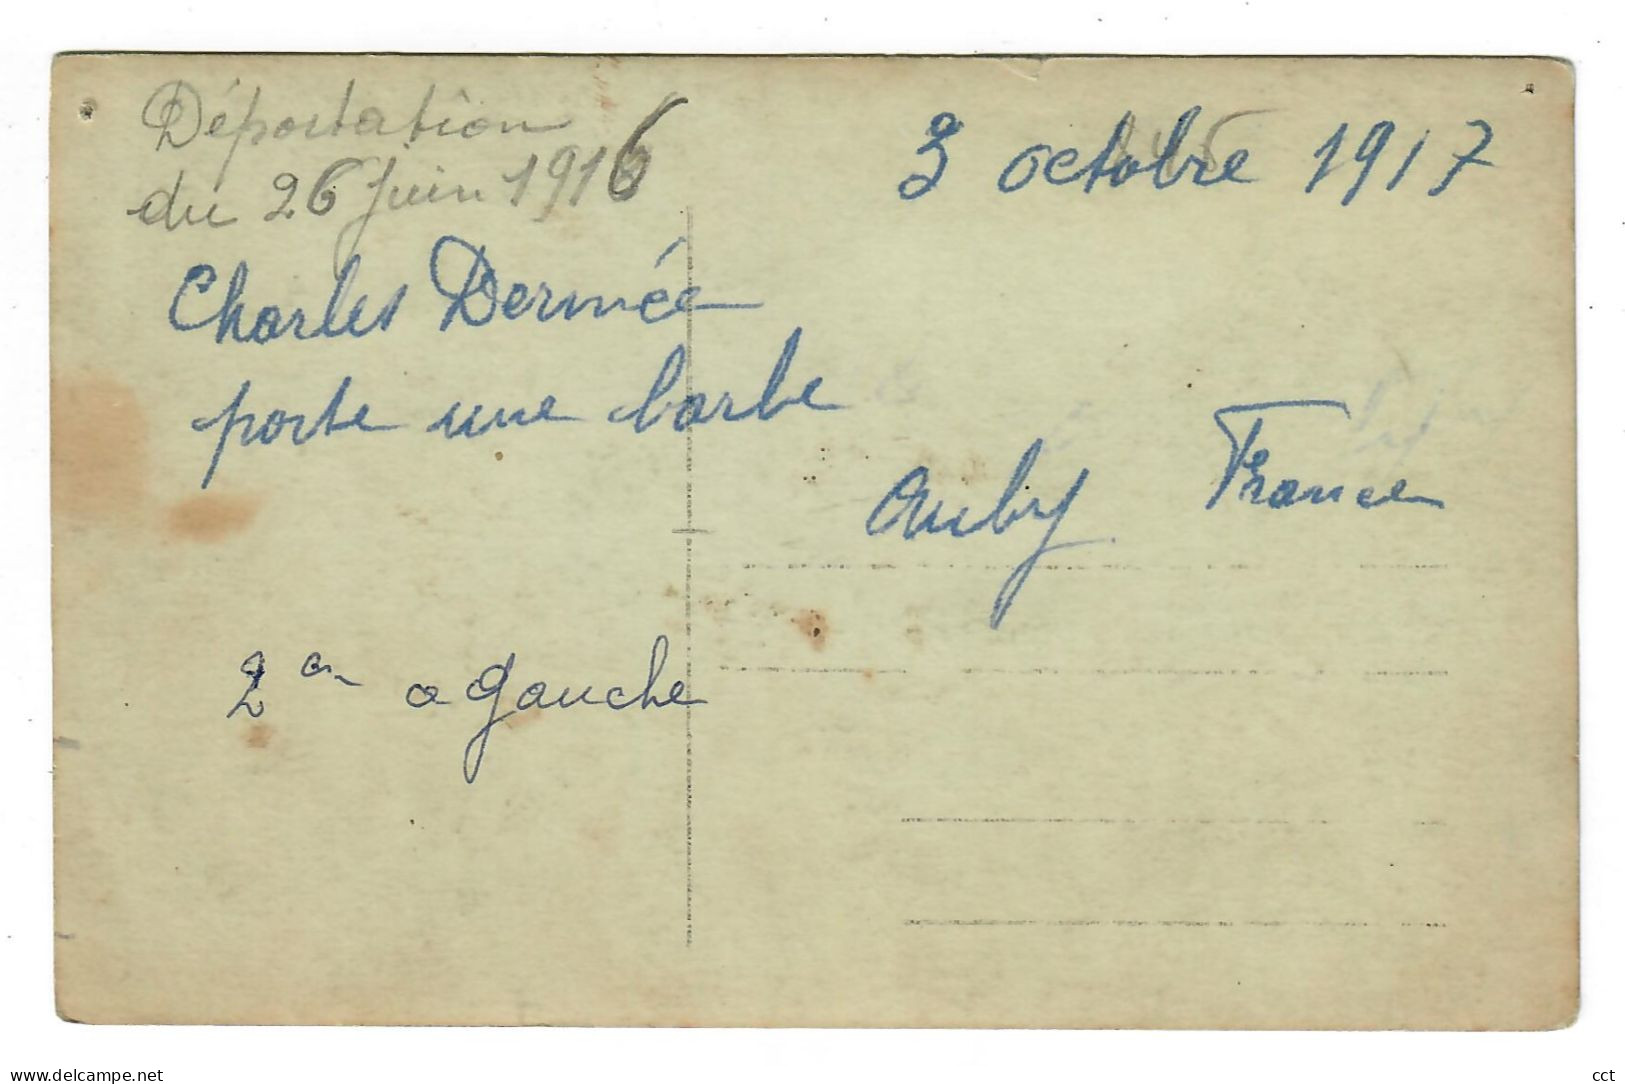 Déportation
du 26 Juin 1916
3 octobre 1917
Charles Dermée
porte une barbe
Auby France
2 a gauche
www.delcampe.net
cct